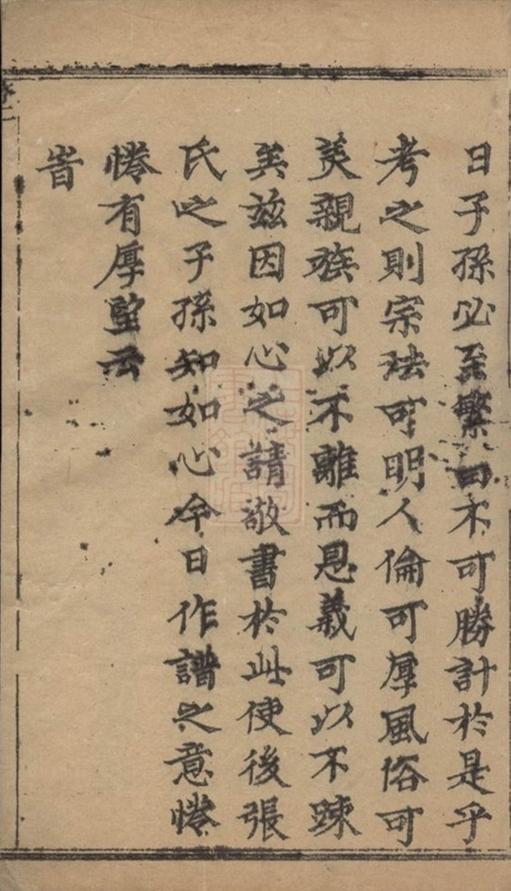 日子孫必至繁曰不可勝計於是乎
考之則宗法可明人倫可厚風俗可
美親族可以不離而恩義可以不踈
矣茲因如心之請敬書於此使後張
氏之子孫知如心今日作譜之意惓
惓有厚望云
旹